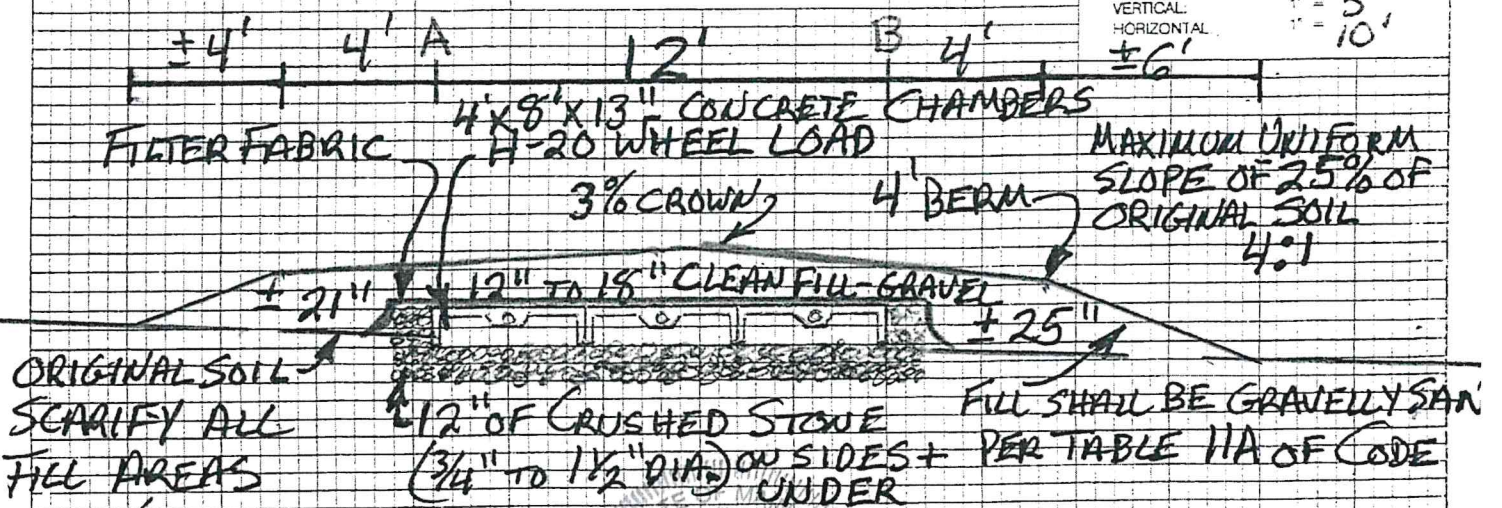 VERTICAL: 1" = 5'
HORIZONTAL 1" = 10'
±4' 4' A 12' B 4' ±6'
4'X8'X13" CONCRETE CHAMBERS
FILTER FABRIC H-20 WHEEL LOAD
MAXIMUM UNIFORM
SLOPE OF 25% OF
ORIGINAL SOIL
4:1
3% CROWN
4' BERM
± 21" 12" TO 18" CLEAN FILL-GRAVEL ± 25"
ORIGINAL SOIL
SCARIFY ALL
FILL AREAS
12" OF CRUSHED STONE
(3/4" TO 1 1/2" DIA.) ON SIDES +
UNDER
FILL SHALL BE GRAVELLY SAN
PER TABLE 11A OF CODE